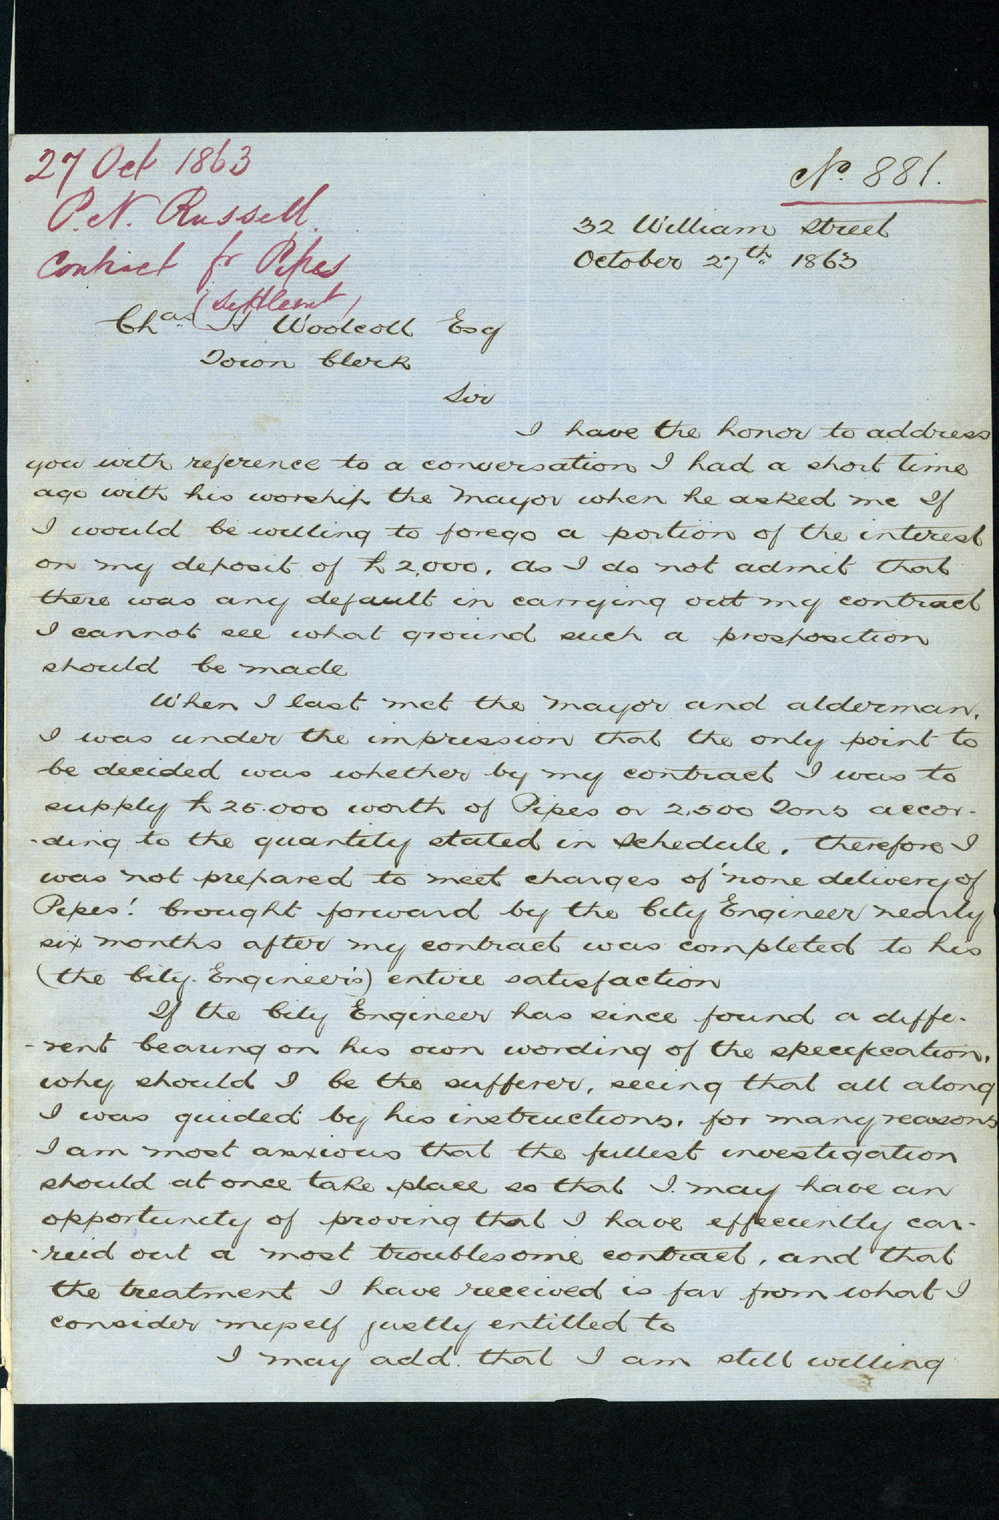 27 Oct 1863
P. N. Russell.
Contract for Pipes
(Settlemt)
No. 881.
32 William Street
October 27th. 1863
Chas. H Woolcott Esq
Town Clerk
Sir
I have the honor to address
you with reference to a conversation I had a short time
ago with his worship the Mayor when he asked me If
I would be willing to forego a portion of the interest
on my deposit of £2,000. As I do not admit that
there was any default in carrying out my contract
I cannot see what ground such a prosposition
should be made
When I last met the Mayor and alderman,
I was under the impression that the only point to
be decided was whether by my contract I was to
supply £25.000 worth of Pipes or 2,500 Tons accor-
-ding to the quantity stated in Schedule, therefore I
was not prepared to meet charges of 'none delivery of
Pipes'. brought forward by the City Engineer nearly
six months after my contract was completed to his
(the City Engineer's) entire satisfaction
If the City Engineer has since found a diffe-
-rent bearing on his own wording of the specification,
why should I be the sufferer, seeing that all along
I was guided by his instructions, for many reasons
I am most anxious that the fullest investigation
should at once take place so that I may have an
opportunity of proving that I have effeciently car-
-reid out a most troublesome contract, and that
the treatment I have received is far from what I
consider myself justly entitled to
I may add that I am still willing